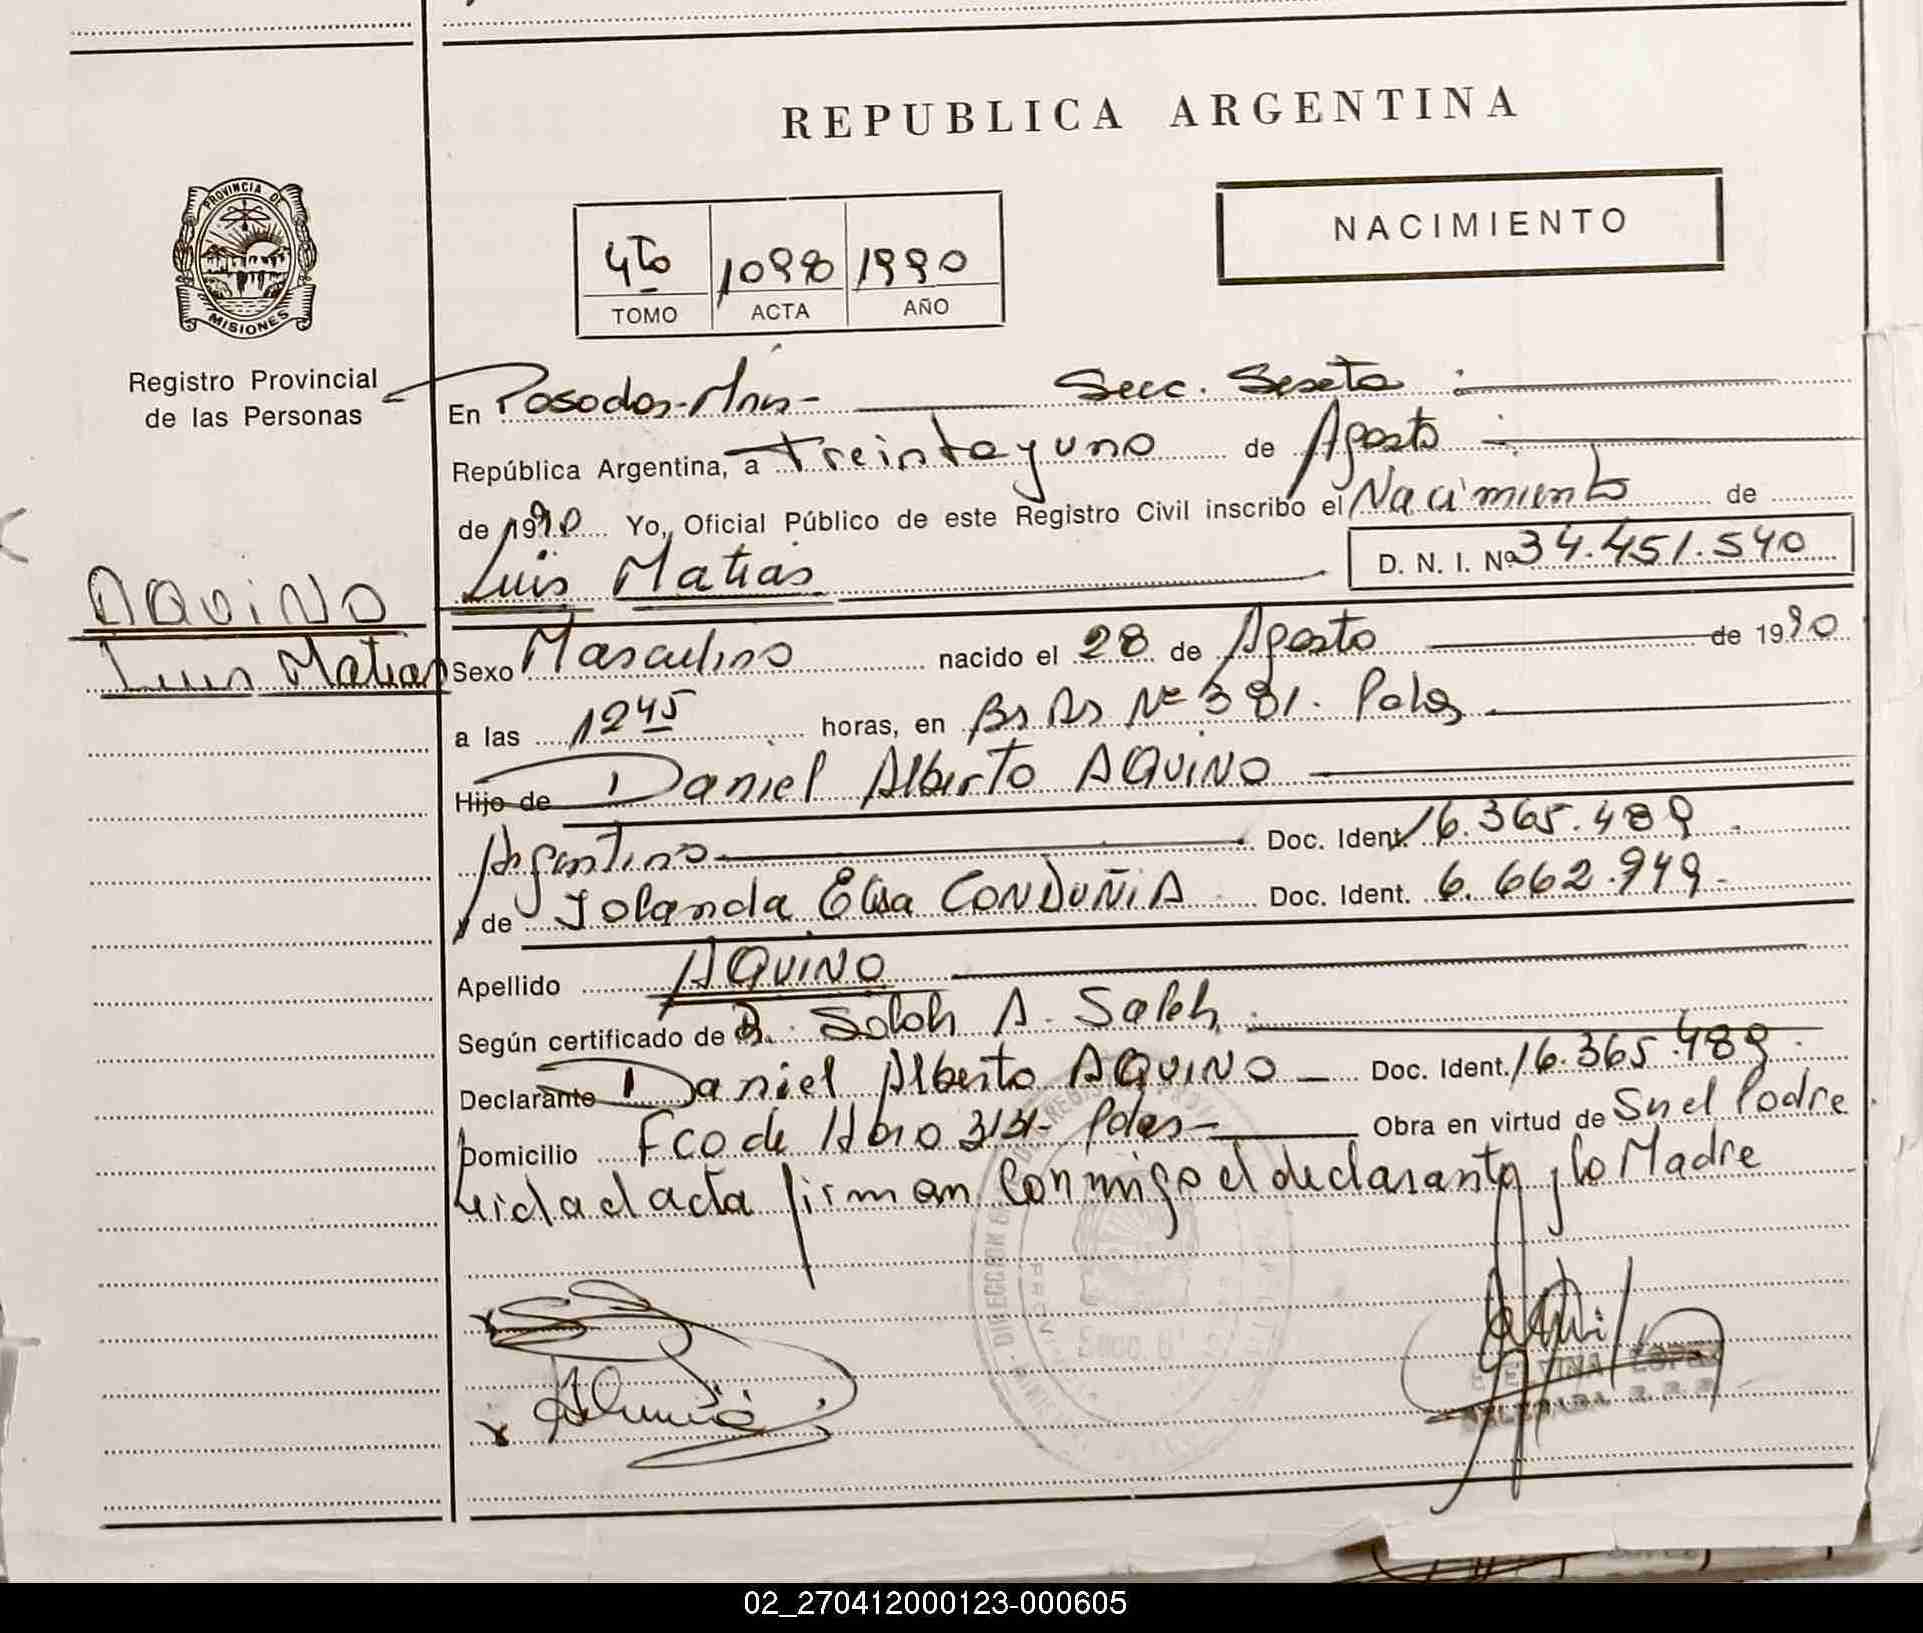 REPUBLICA ARGENTINA
NACIMIENTO
4to 1098 1990
TOMO ACTA AÑO
PROVINCIA DE
MISIONES
Registro Provincial
de las Personas
En Posadas-Mns- Secc. Sexta
República Argentina, a treinta y uno de Agosto
de 1990 Yo, Oficial Público de este Registro Civil inscribo el Nacimiento de
Luis Matias D. N. I. Nº 34.451.540
AQUINO
Luis Matias
Sexo Masculino nacido el 28 de Agosto de 1990
a las 1245 horas, en Bs As Nº 381. Pdas
Hijo de Daniel Alberto AQUINO
Argentino Doc. Ident. 16.365.489
y de Iolanda Elisa CONDUÑIA Doc. Ident. 6.662.949-
Apellido AQUINO
Según certificado de Dr. Saleh A. Saleh
Declarante Daniel Alberto AQUINO Doc. Ident. 16.365.489
Domicilio Fco de Haro 3131- Pdas- Obra en virtud de Su el Padre
Leida el acta firman conmigo el declarante y la Madre
02_270412000123-000605